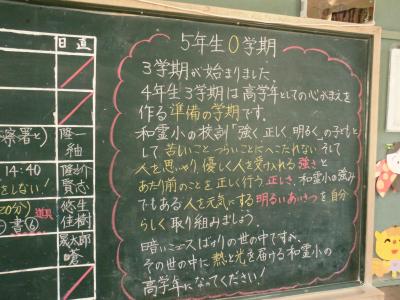 5年生0学期
3学期が始まりました。
4年生3学期は高学年としての心がまえを
作る準備の学期です。
和霊小の校訓「強く正しく明るく」の子ども
として苦しいことつらいことにへこたれない そして
人を思いやり、優しく人を受け入れる強さと
あたり前のことを正しく行う正しさ、和霊小の強み
でもある人を元気にする明るいあいさつを自分
らしく取り組みましょう。
暗いニュースばかりの世の中ですが、
その世の中に熱と光を届ける和霊小の
高学年になってください!
日直
察署と)
隆一
紬
14:40
をしない!
賢志
20分)
道具
書⑥
悠生
佳樹